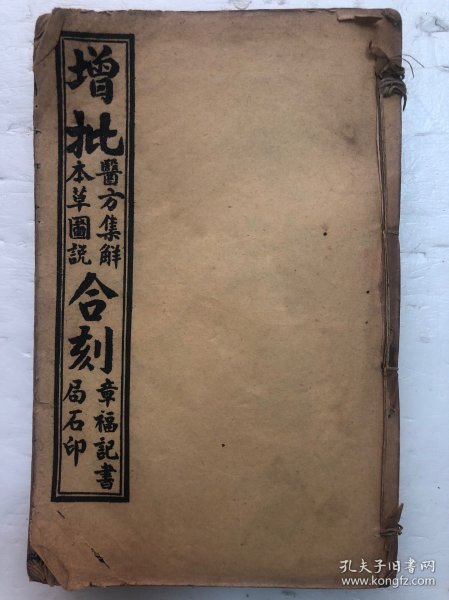 增批
醫方集解
本草圖説
合刻
章福記書
局石印
孔夫子旧书网
www.kongfz.com